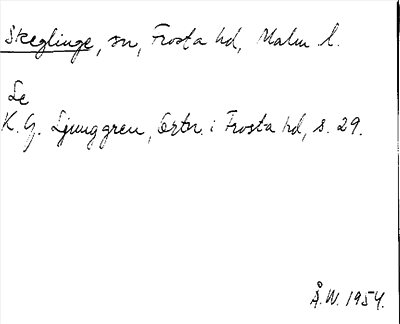 Skeglinge, sn, Frosta hd, Malm l.
Se
K. G. Ljunggren, Ortn. i Frosta hd, s. 29.
Å. W. 1954.